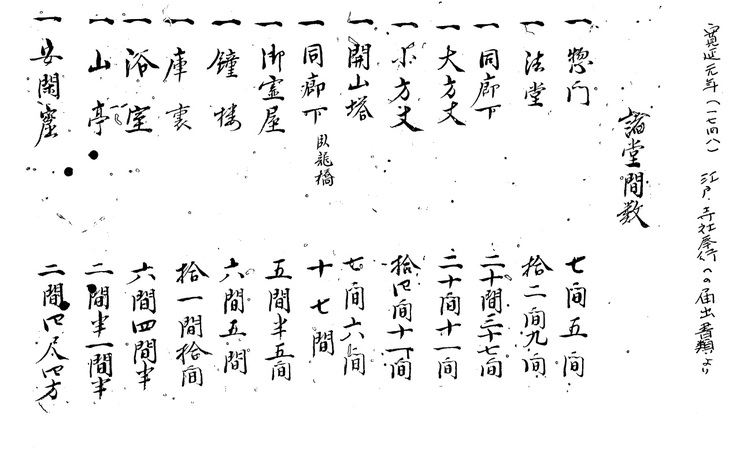 寛延元年(一七四八) 江戸・寺社奉行への届出書類より
諸堂間数
一 惣門 七間五間
一 法堂 拾二間九間
一 同廊下 二十間三十七間
一 大方丈 二十間十一間
一 小方丈 拾四間十一間
一 開山塔 七間六間
一 同廊下 臥龍橋 十七間
一 御霊屋 五間半五間
一 鐘楼 六間五間
一 庫裏 拾一間拾間
一 浴室 六間四間半
一 山亭 二間半一間半
一 安閑窟 二間四尺四方